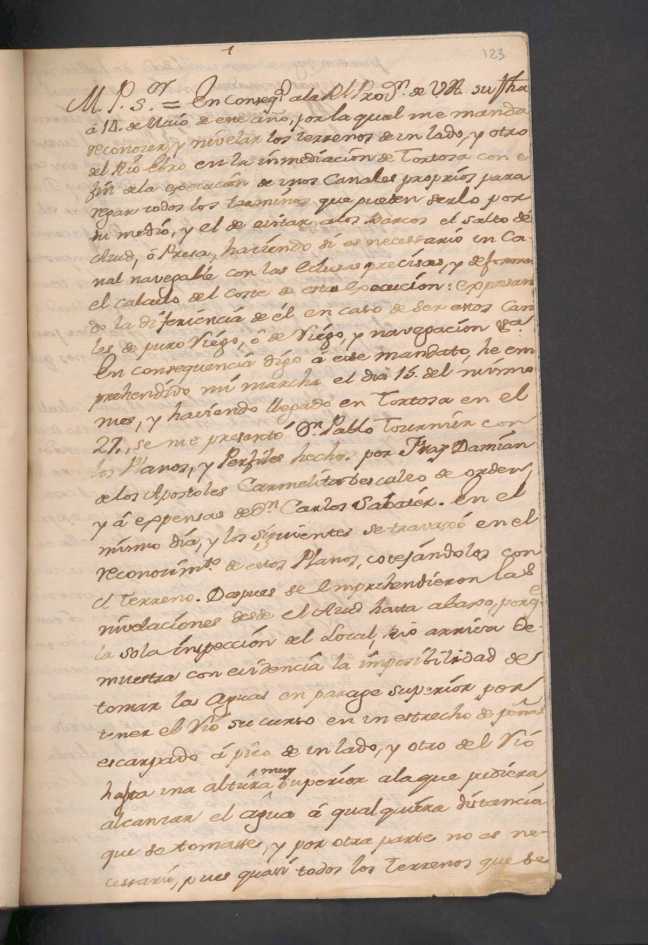 123
M. P. S.or = En conseq.a a la Rl. Pro.on de V.A. su fha
â 14. de Maio de este año, por la qual me manda
reconocer, y nivelar los terrenos de un lado, y otro
del Rio Ebro en la inmediacion de Tortosa con el
fin de la execucion de unos Canales proprios para
regar todos los terminos, que pueden serlo por
su medio, y el de evitar a los Barcos el salto de
Azud, ô Presa, haciendo si es necessario un Ca-
nal navegable con las Eclusas precisas, y de formar
el calculo del Coste de esta Execucion: expresan-
do la diferiencia de él en caso de ser estos Cana-
les de puro Riego, ô de Riego, y navegacion &a.
En consequencia digo â este mandato, he em
prehendido mi marcha el dia 15. del mismo
mes, y haviendo llegado en Tortosa en el
27., se me presentó Dn. Pablo Tournier con
los Planos, y Perfiles hechos por Fray Damián
de los Apostoles Carmelita Descalco de orden,
y â expensas de Dn. Carlos Sabatér. En el
mismo dia, y los siguientes se travajó en el
reconocim.to de estos Planos, cotejándolos con
el Terreno. Despues se Emprehendieron las
nivelaciones desde el Azud hasta abaxo, porq.e
la sola inspección del Local, rio arriva de-
muestra con evidencia la imposibilidad de
tomar las Aguas en parage superior por
tener el Rio su curso en un estrecho de peñas
escarpado á pico de un lado, y otro del Rio
hasta una altura muy superior a la que pudiera
alcanzar el agua â qualquiera distancia
que se tomasse, y por otra parte no es ne-
cessario, pues quasi todos los Terrenos que se